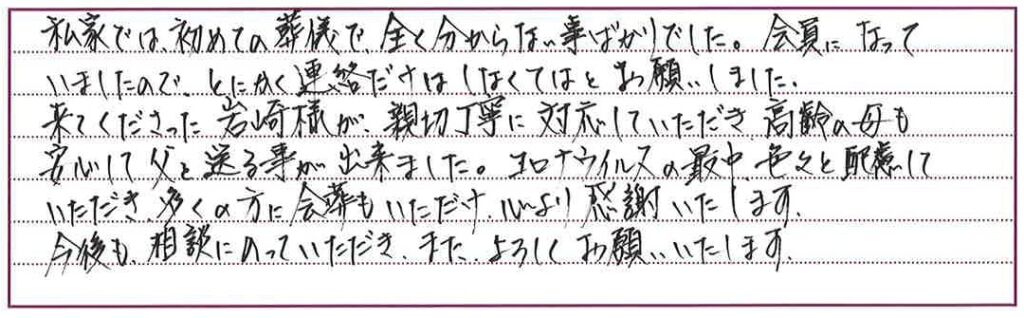 私家では、初めての葬儀で、全く分からない事ばかりでした。会員になって
いましたので、とにかく連絡だけはしなくてはとお願いしました。
来てくださった岩崎様が、親切丁寧に対応していただき、高齢の母も
安心して父を送る事が出来ました。コロナウイルスの最中、色々と配慮して
いただき、多くの方に会葬もいただけ、心より感謝いたします。
今後も、相談にのっていただき、また、よろしくお願いいたします。